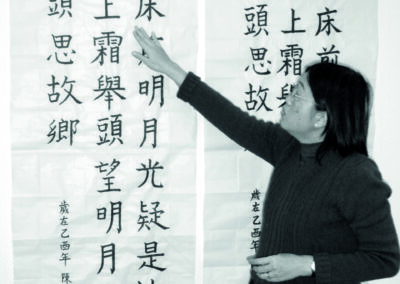 床前
上霜舉
頭思故
歲左乙酉年
床明月光疑是
上霜舉頭望明月
頭思故鄉
歲左乙酉年 陳